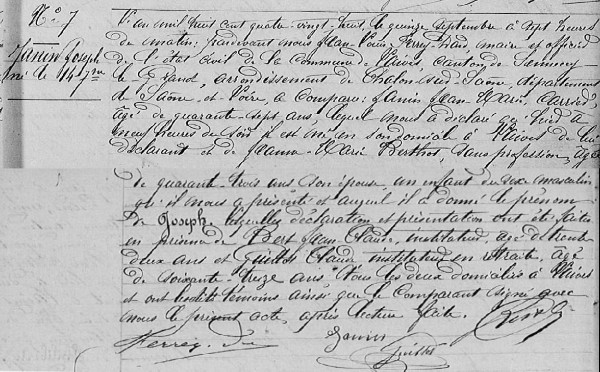 N° 7
Janin Joseph
né le 14 7bre
L'an mil huit cent quatre-vingt-huit, le quinze septembre à sept heures
du matin, pardevant nous Jean-Louis Ferrey, maire et officier
de l'état civil de la Commune de Nièvres, Canton de Sennecey
le Grand, arrondissement de Chalon-sur-Saône, département
de Saône-et-Loire, a Comparu Janin Jean-Marie,
âgé de quarante-sept ans, lequel nous a déclaré qu'hier à
neuf heures du soir il est né en son domicile à de lui
déclarant et de Jeanne-Marie Berthot, sans profession, âgée
de quarante-trois ans, son épouse, un enfant du sexe masculin
qu'il nous a présenté et auquel il a donné le prénom
de Joseph. Lesquelles déclaration et présentation ont été faites
en présence de Bert Jean-Claude, instituteur, âgé de trente
deux ans et Guillot Claude instituteur en retraite, âgé
de soixante treize ans. Tous les deux domiciliés à
et ont lesdits témoins ainsi que le Comparant signé avec
nous le présent acte, après lecture faite.
Ferrey
Janin
Guillot